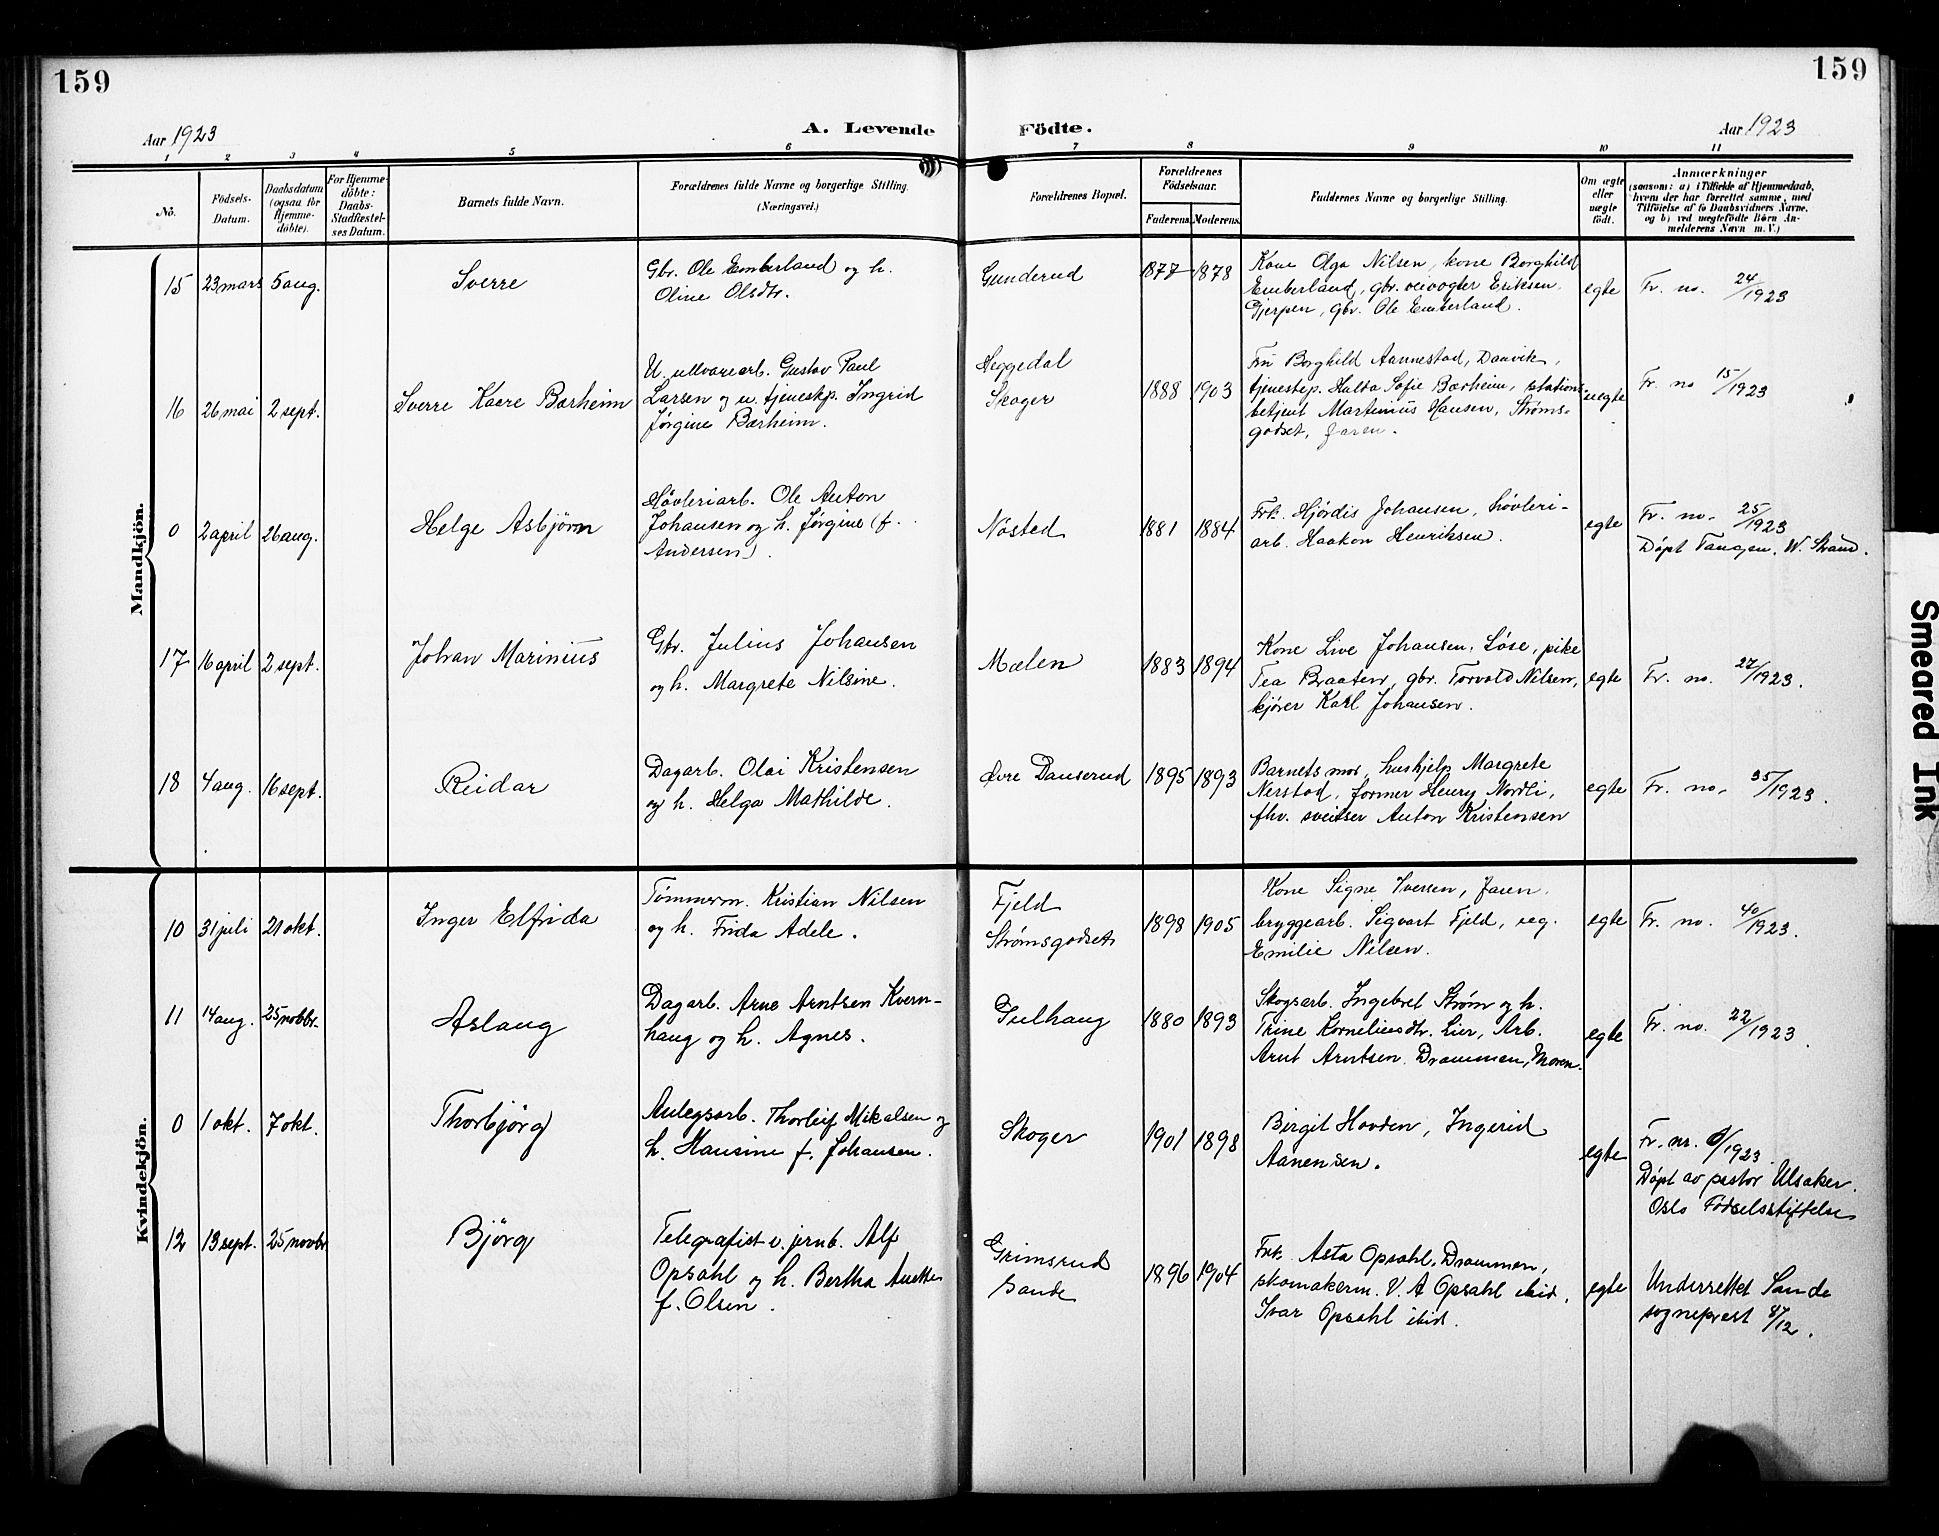 159
159
Aar 1923
A. Levende Födte.
Aar 1923
1 2 3 4 5 6 7 8 9 10 11
No.
Födsels-Datum.
Daabsdatum (ogsaa for Hjemme-döbte).
For Hjemme-döbte: Daabs-Stadfæstel-ses Datum.
Barnets fulde Navn.
Forældrenes fulde Navne og borgerlige Stilling.
(Næringsvei.)
Forældrenes Bopæl.
Forældrenes Födselsaar.
Faderens. Moderens.
Faddernes Navne og borgerlige Stilling.
Om ægte eller uægte födt.
Anmærkninger
(saasom: a) i Tilfælde af Hjemmedaab,
hvem der har forrettet samme, med
Tilföielse af to Daabsvidners Navne,
og b) ved uegtefödte Börn An-
melderens Navn m. V.)
Mandkjön.
15 23 mars 5 aug.
Sverre
Gbr. Ole Emberland og h.
Oline Olsdtr.
Gunderud
1877 1878
Kone Olga Nilsen, kone Borghild
Emberland, gbr. veivogter Eriksen
Gjerpen, Gbr. Ole Emberland.
egte
Fr. no. 24/1923
16 26 mai 2 sept.
Sverre Kaare Barheim
U. ullvarearb. Gustav Paul
Larsen og u. tjenestep. Ingrid
Jørgine Barheim.
Heggedal
Skoger
1888 1903
Fru Borghild Aannestad, Danvik,
tjenestep. Halda Sofie Barheim, stations-
betjent Martinius Hansen, Strøms-
godset, faren.
uegte
Fr. no 15/1923
0 2 april 26 aug.
Helge Asbjörn
Høvleriarb. Ole Anton
Johansen og h. Jørgine (f.
Andersen).
Nøsted
1881 1884
Frk. Hjördis Johansen, høvleri-
arb. Haakon Henriksen.
egte
Fr. no. 25/1923
Døpt Tangen. W. Strand.
17 16 april 2 sept.
Johan Marinius
Gbr. Julius Johansen
og h. Margrete Nilsine.
Mælen
1883 1894
Kone Live Johansen, Løse, pike
Tea Braaten, gbr. Torvald Nilsen,
kjører Karl Johansen.
egte
Fr. no. 27/1923.
18 4 aug. 16 sept.
Reidar
Dagarb. Olai Kristensen
og h. Helga Mathilde.
Øvre Danserud
1895 1893
Barnets mor, hushjelp Margrete
Nerstad, former Henry Nordli,
fhv. sveitser Anton Kristensen
egte
Fr. no. 35/1923.
Kvindekjön.
10 31 juli 21 okt.
Inger Elfrida
Tømmerm. Kristian Nilsen
og h. Frida Adele.
Fjeld
Strømsgodset
1898 1905
Kone Signe Iversen, faren
bryggearb. Sigvart Fjeld, ug.
Emilie Nilsen.
egte
Fr. no. 40/1923.
11 14 aug. 25 novbr.
Aslaug
Dagarb. Arne Arntsen Kvern-
haug og h. Agnes.
Gulhaug
1880 1893
Skogsarb. Ingebret Strøm og h.
Trine Korneliusdtr. Lier, Arb.
Arnt Arntsen Drammen, Moren.
egte
Fr. no. 22/1923.
0 1 okt. 7 okt.
Thorbjörg
Anlegsarb. Thorleif Mikalsen og
h. Hansine f. Johansen.
Skoger
1901 1898
Birgit Hovden, Ingerid
Aanensen.
egte
Fr. nr. 0/1923
Døpt av pastor Ulsaker.
Oslo Fødselsstiftelse
12 13 sept. 25 novbr
Bjørg
Telegrafist v. jernb. Alf
Opsahl og h. Bertha Anette
f. Olsen.
Grimsrud
Sande
1896 1904
Frk. Asta Opsahl, Drammen,
skomakerm. V. A Opsahl ibid,
Ivar Opsahl ibid.
egte
Underrettet Sande
sogneprest 8/12.
Smeared Ink